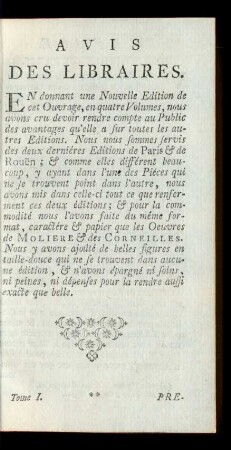 AVIS
DES LIBRAIRES.
EN donnant une Nouvelle Edition de
cet Ouvrage, en quatre Volumes, nous
avons cru devoir rendre compte au Public
des avantages qu'elle a sur toutes les au-
tres Editions. Nous nous sommes servis
des deux derniéres Editions de Paris & de
Rouën; & comme elles différent beau-
coup, y ayant dans l'une des Piéces qui
ne se trouvent point dans l'autre, nous
avons mis dans celle-ci tout ce que renfer-
ment ces deux éditions; & pour la com-
modité nous l'avons faite du même for-
mat, caractére & papier que les Oeuvres
de MOLIERE & des CORNEILLES.
Nous y avons ajoûté de belles figures en
taille-douce qui ne se trouvent dans aucu-
ne édition, & n'avons épargné ni soins,
ni peines, ni dépenses pour la rendre aussi
exacte que belle.
Tome I. ** PRE-